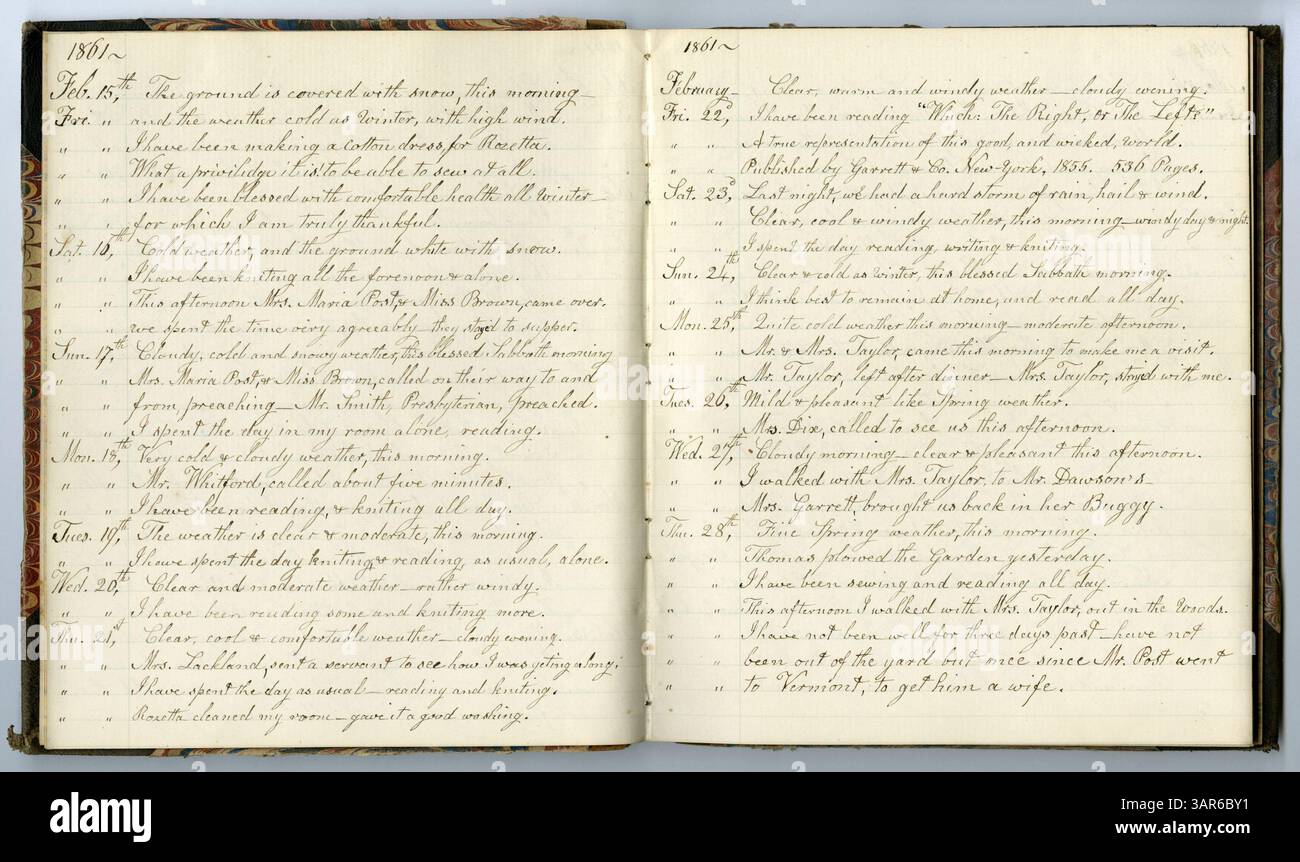 1861~
Feb. 15,th The ground is covered with snow, this morning—
Fri. " and the weather cold as Winter, with high wind.
" " I have been making a Cotton dress, for Rozetta.
" " What a privilidge it is to be able to sew at all.
" " I have been blessed with comfortable health all Winter—
" " for which I am truly thankful.
Sat. 16,th Cold weather, and the ground white with snow.
" " I have been kniting all the forenoon & alone.
" " This afternoon Mrs. Maria Post, & Miss Brown, came over.
" " we spent the time very agreeably—they stay'd to supper.
Sun. 17,th Cloudy, cold and snowy weather, this blessed Sabbath morning
" " Mrs. Maria Post, & Miss Brown, called on their way to and
" " from, preaching—Mr. Smith, Presbyterian, preached.
" " I spent the day in my room alone, reading.
Mon. 18,th Very cold & cloudy weather, this morning.
" " Mr. Whitford, called about five minutes.
" " I have been reading, & kniting all day.
Tues. 19,th The weather is clear & moderate, this morning.
" " I have spent the day kniting & reading, as usual, alone.
Wed. 20,th Clear and moderate weather—rather windy.
" " I have been reading some and kniting more.
Thu. 21,st Clear, cool & comfortable weather—cloudy evening.
" " Mrs. Lackland, sent a servant to see how I was geting along;
" " I have spent the day as usual—reading and kniting.
" " Rozetta cleaned my room—gave it a good washing.
1861~
February— Clear, warm and windy weather—cloudy evening.
Fri. 22,d I have been reading "Which: The Right, or The Left?"
" " A true representation of this good, and wicked, world.
" " Published by Garrett & Co. New-York, 1855. 536 Pages.
Sat. 23,d Last night, we had a hard storm of rain, hail & wind.
" " Clear, cool & windy weather, this morning—windy day & night.
" " I spent the day reading, writing & kniting.
Sun. 24,th Clear & cold as Winter, this blessed Sabbath morning.
" " I think best to remain at home, and read all day.
Mon. 25,th Quite cold weather this morning—moderate afternoon.
" " Mr. & Mrs. Taylor, came this morning to make me a visit.
" " Mr. Taylor, left after dinner—Mrs. Taylor, stay'd with me.
Tues. 26,th Mild & pleasant like Spring weather.
" " Mrs. Dix, called to see us this afternoon.
Wed. 27,th Cloudy morning—clear & pleasant this afternoon.
" " I walked with Mrs. Taylor, to Mr. Dawson's—
" " Mrs. Garrett, brought us back in her Buggy.
Thu. 28,th Fine Spring weather, this morning.
" " Thomas plowed the Garden yesterday.
" " I have been sewing and reading all day.
" " This afternoon I walked with Mrs. Taylor, out in the Woods.
" " I have not been well for three days past—have not
" " been out of the yard but once since Mr. Post went
" " to Vermont, to get him a wife.
alamy
Image ID: 3AR6BY1
www.alamy.com